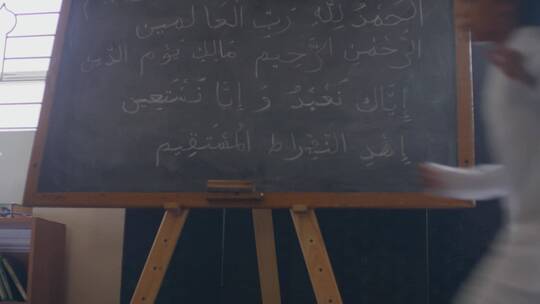 الْحَمْدُ لِلَّهِ رَبِّ الْعَالَمِين
الرَّحْمٰنِ الرَّحِيمِ مَالِكِ يَوْمِ الدِّين
إِيَّاك نَعْبُدُ وَ إِيَّا نَسْتَعِين
إِهْدِ الْمُسْتَقِيم